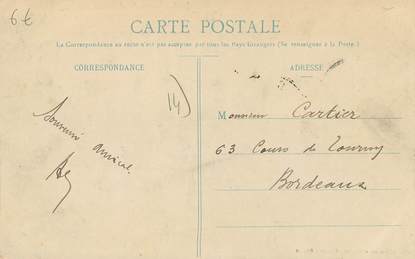 6€
CARTE POSTALE
La Correspondance au recto n'est pas acceptée par tous les Pays étrangers (Se renseigner à la Poste.)
CORRESPONDANCE
ADRESSE
14)
Souvenir amical
Monsieur Cartier
63 Cours de Tourny
Bordeaux